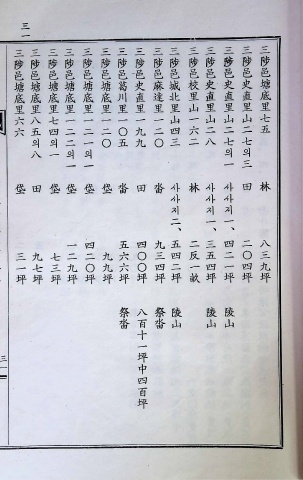 三陟邑塘底里七五 林 八三九坪
三陟邑史直里山二七의三 田 二〇四坪
三陟邑史直里山二七의一 사사지一、四二一坪 陵山
三陟邑史直里山二八 사사지一、三五四坪 陵山
三陟邑校里山一六二 林 二反一畝
三陟邑城北里山四三 사사지二、五四二坪 陵山
三陟邑麻達里一二〇 畓 九三四坪 祭畓
三陟邑史直里一九九 田 四〇〇坪 八百十一坪中四百坪
三陟邑葛川里一〇五 畓 五六六坪 祭畓
三陟邑塘底里一二〇 垈 九九坪
三陟邑塘底里一二一의一 垈 四二〇坪
三陟邑塘底里一二二의一 垈 一二九坪
三陟邑塘底里七四의一 垈 七三坪
三陟邑塘底里八五의八 田 九七坪
三陟邑塘底里六六 垈 三一坪
三一